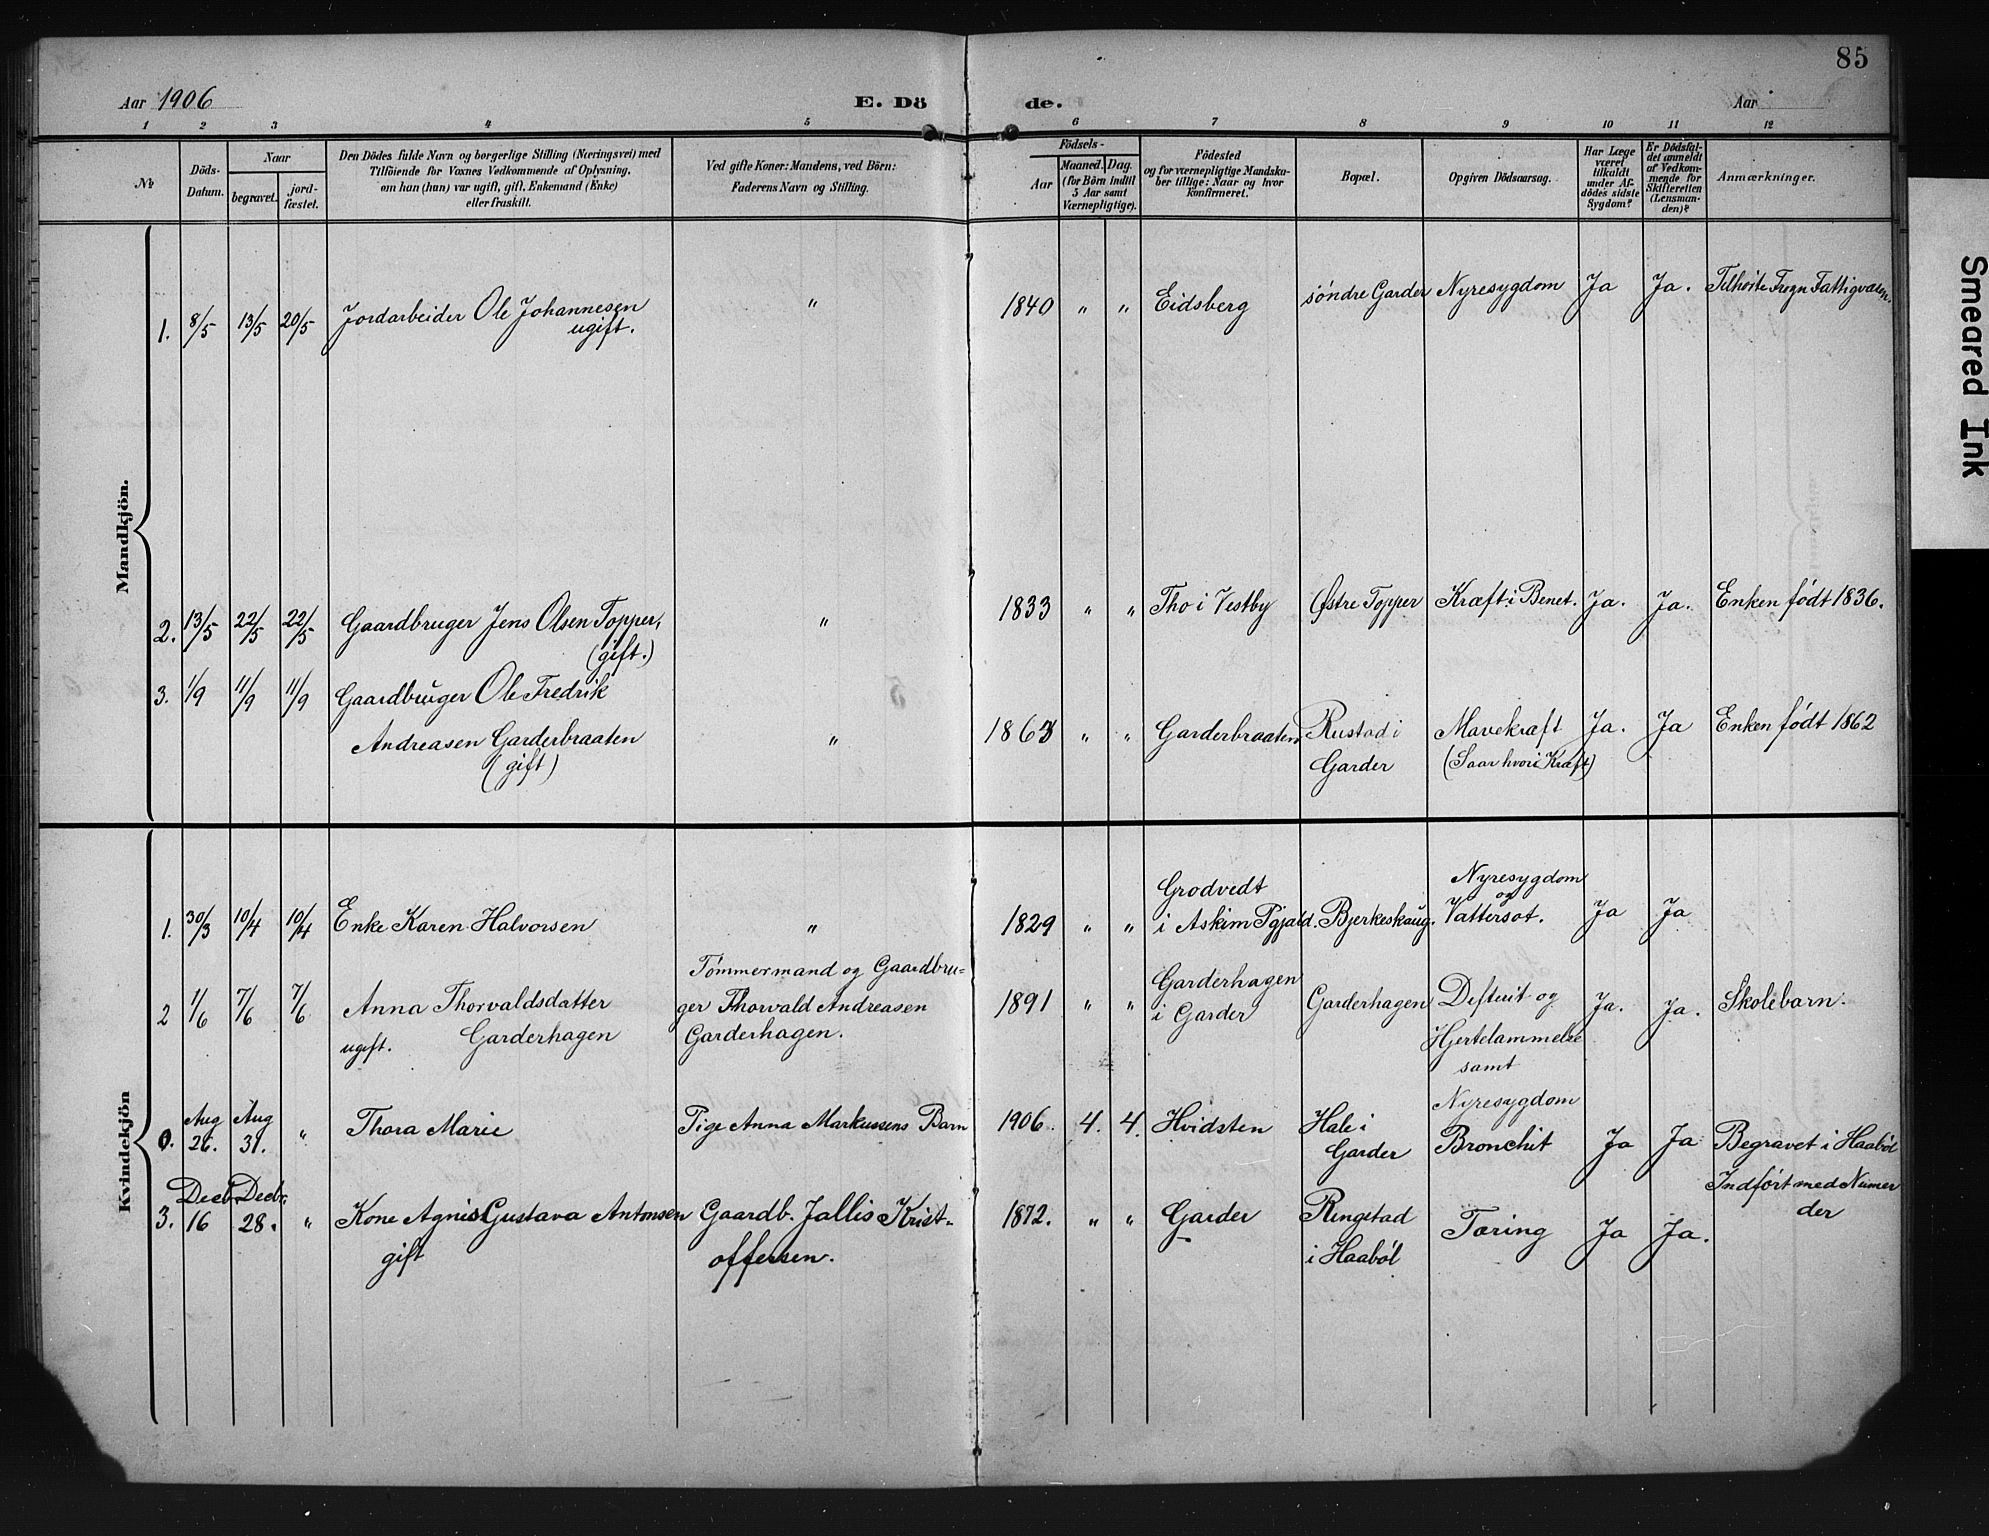 85
Aar 1906
E. Dö
de.
Aar
1 2 3 4 5 6 7 8 9 10 11 12
№
Döds-
Datum.
Naar
begravet.
jord-
fæstet.
Den Dödes fulde Navn og borgerlige Stilling (Næringsvei) med
Tilföiende for Voxnes Vedkommende af Oplysning,
om han (hun) var ugift, gift, Enkemand (Enke)
eller fraskilt.
Ved gifte Koner: Mandens, ved Börn:
Faderens Navn og Stilling.
Födsels-
Aar
Maaned.
Dag.
(for Börn indtil
5 Aar samt
Værnepligtige).
Födested
og for værnepligtige Mandska-
ber tillige: Naar og hvor
konfirmeret.
Bopæl.
Opgiven Dödsaarsag.
Har Læge
været
tilkaldt
under Af-
dödes sidste
Sygdom?
Er Dödsfal-
det anmeldt
af Vedkom-
mende for
Skifteretten
(Lensman-
den)?
Anmærkninger.
Mandkjön.
1. 8/5 13/5 20/5 Jordarbeider Ole Johannesen
ugift.
" 1840 " " Eidsberg søndre Garder Nyresygdom Ja Ja. Tilhørte Frogn Fattigvæsen.
2. 13/5 22/5 22/5 Gaardbruger Jens Olsen Topper,
(gift.)
" 1833 " " Tho i Vestby Østre Topper Kræft i Benet. Ja. Ja. Enken født 1836.
3. 1/9 11/9 11/9 Gaardbruger Ole Fredrik
Andreasen Garderbraaten
(gift)
" 1863 " " Garderbraaten Rustad i
Garder
Mavekræft
(Saar hvori Kræft)
Ja. Ja Enken født 1862
Kvindekjön
1. 30/3 10/4 10/4 Enke Karen Halvorsen " 1829 " " Grodvedt
i Askim Pgjæld. Bjerkeskaug.
Nyresygdom
og
Vattersot.
Ja Ja
2 1/6 7/6 7/6 Anna Thorvaldsdatter
ugift. Garderhagen
Tømmermand og Gaardbru-
ger Thorvald Andreasen
Garderhagen.
1891 " " Garderhagen
i Garder
Garderhagen
Deftuit og
Hjertelammelse
samt
Nyresygdom
Ja. Ja. Skolebarn.
0. Aug
26.
Aug
31.
" Thora Marie Pige Anna Markussens Barn 1906. 4. 4. Hvidsten Hale i
Garder
Bronchit Ja Ja Begravet i Haabøl
Indført med Numer
der
3. Decb.
16
Decbr.
28.
" Kone Agnis Gustava Antonsen
gift
Gaardb. Jallis Krist-
offersen.
1872. " " Garder Ringstad
i Haabøl
Tæring Ja Ja.
Smeared Ink